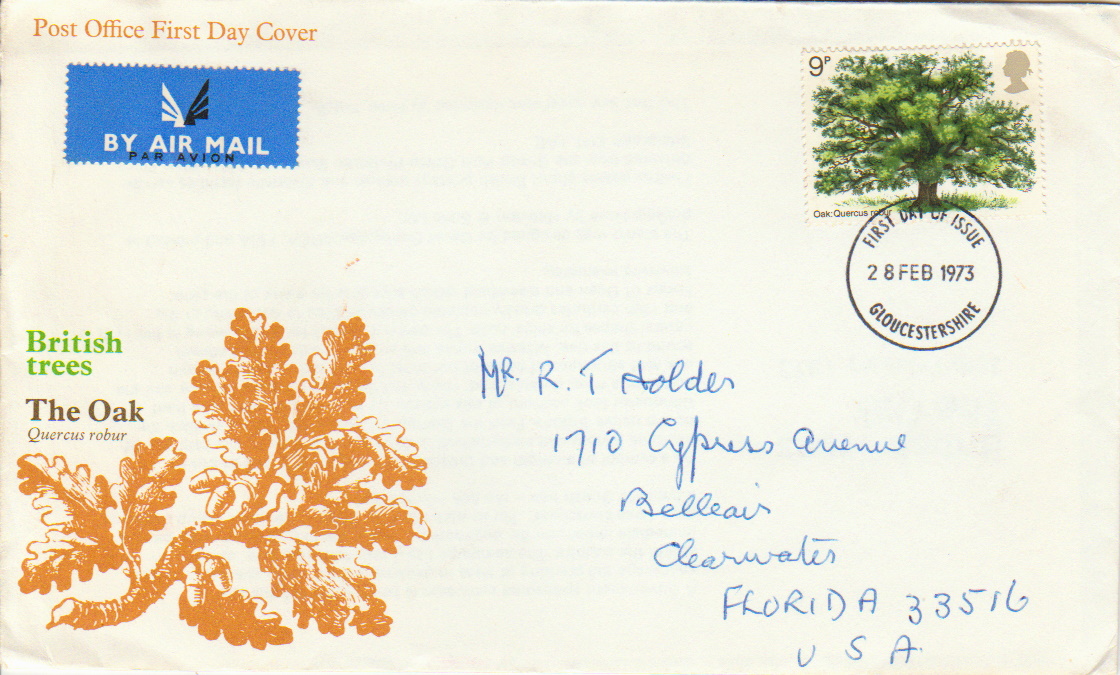 Post Office First Day Cover
BY AIR MAIL
PAR AVION
9P
Oak: Quercus robur
FIRST DAY OF ISSUE
28 FEB 1973
GLOUCESTERSHIRE
British
trees
The Oak
Quercus robur
Mr. R. T Holder
1710 Cypress Avenue
Belleair
Clearwater
FLORIDA 33516
U S A.